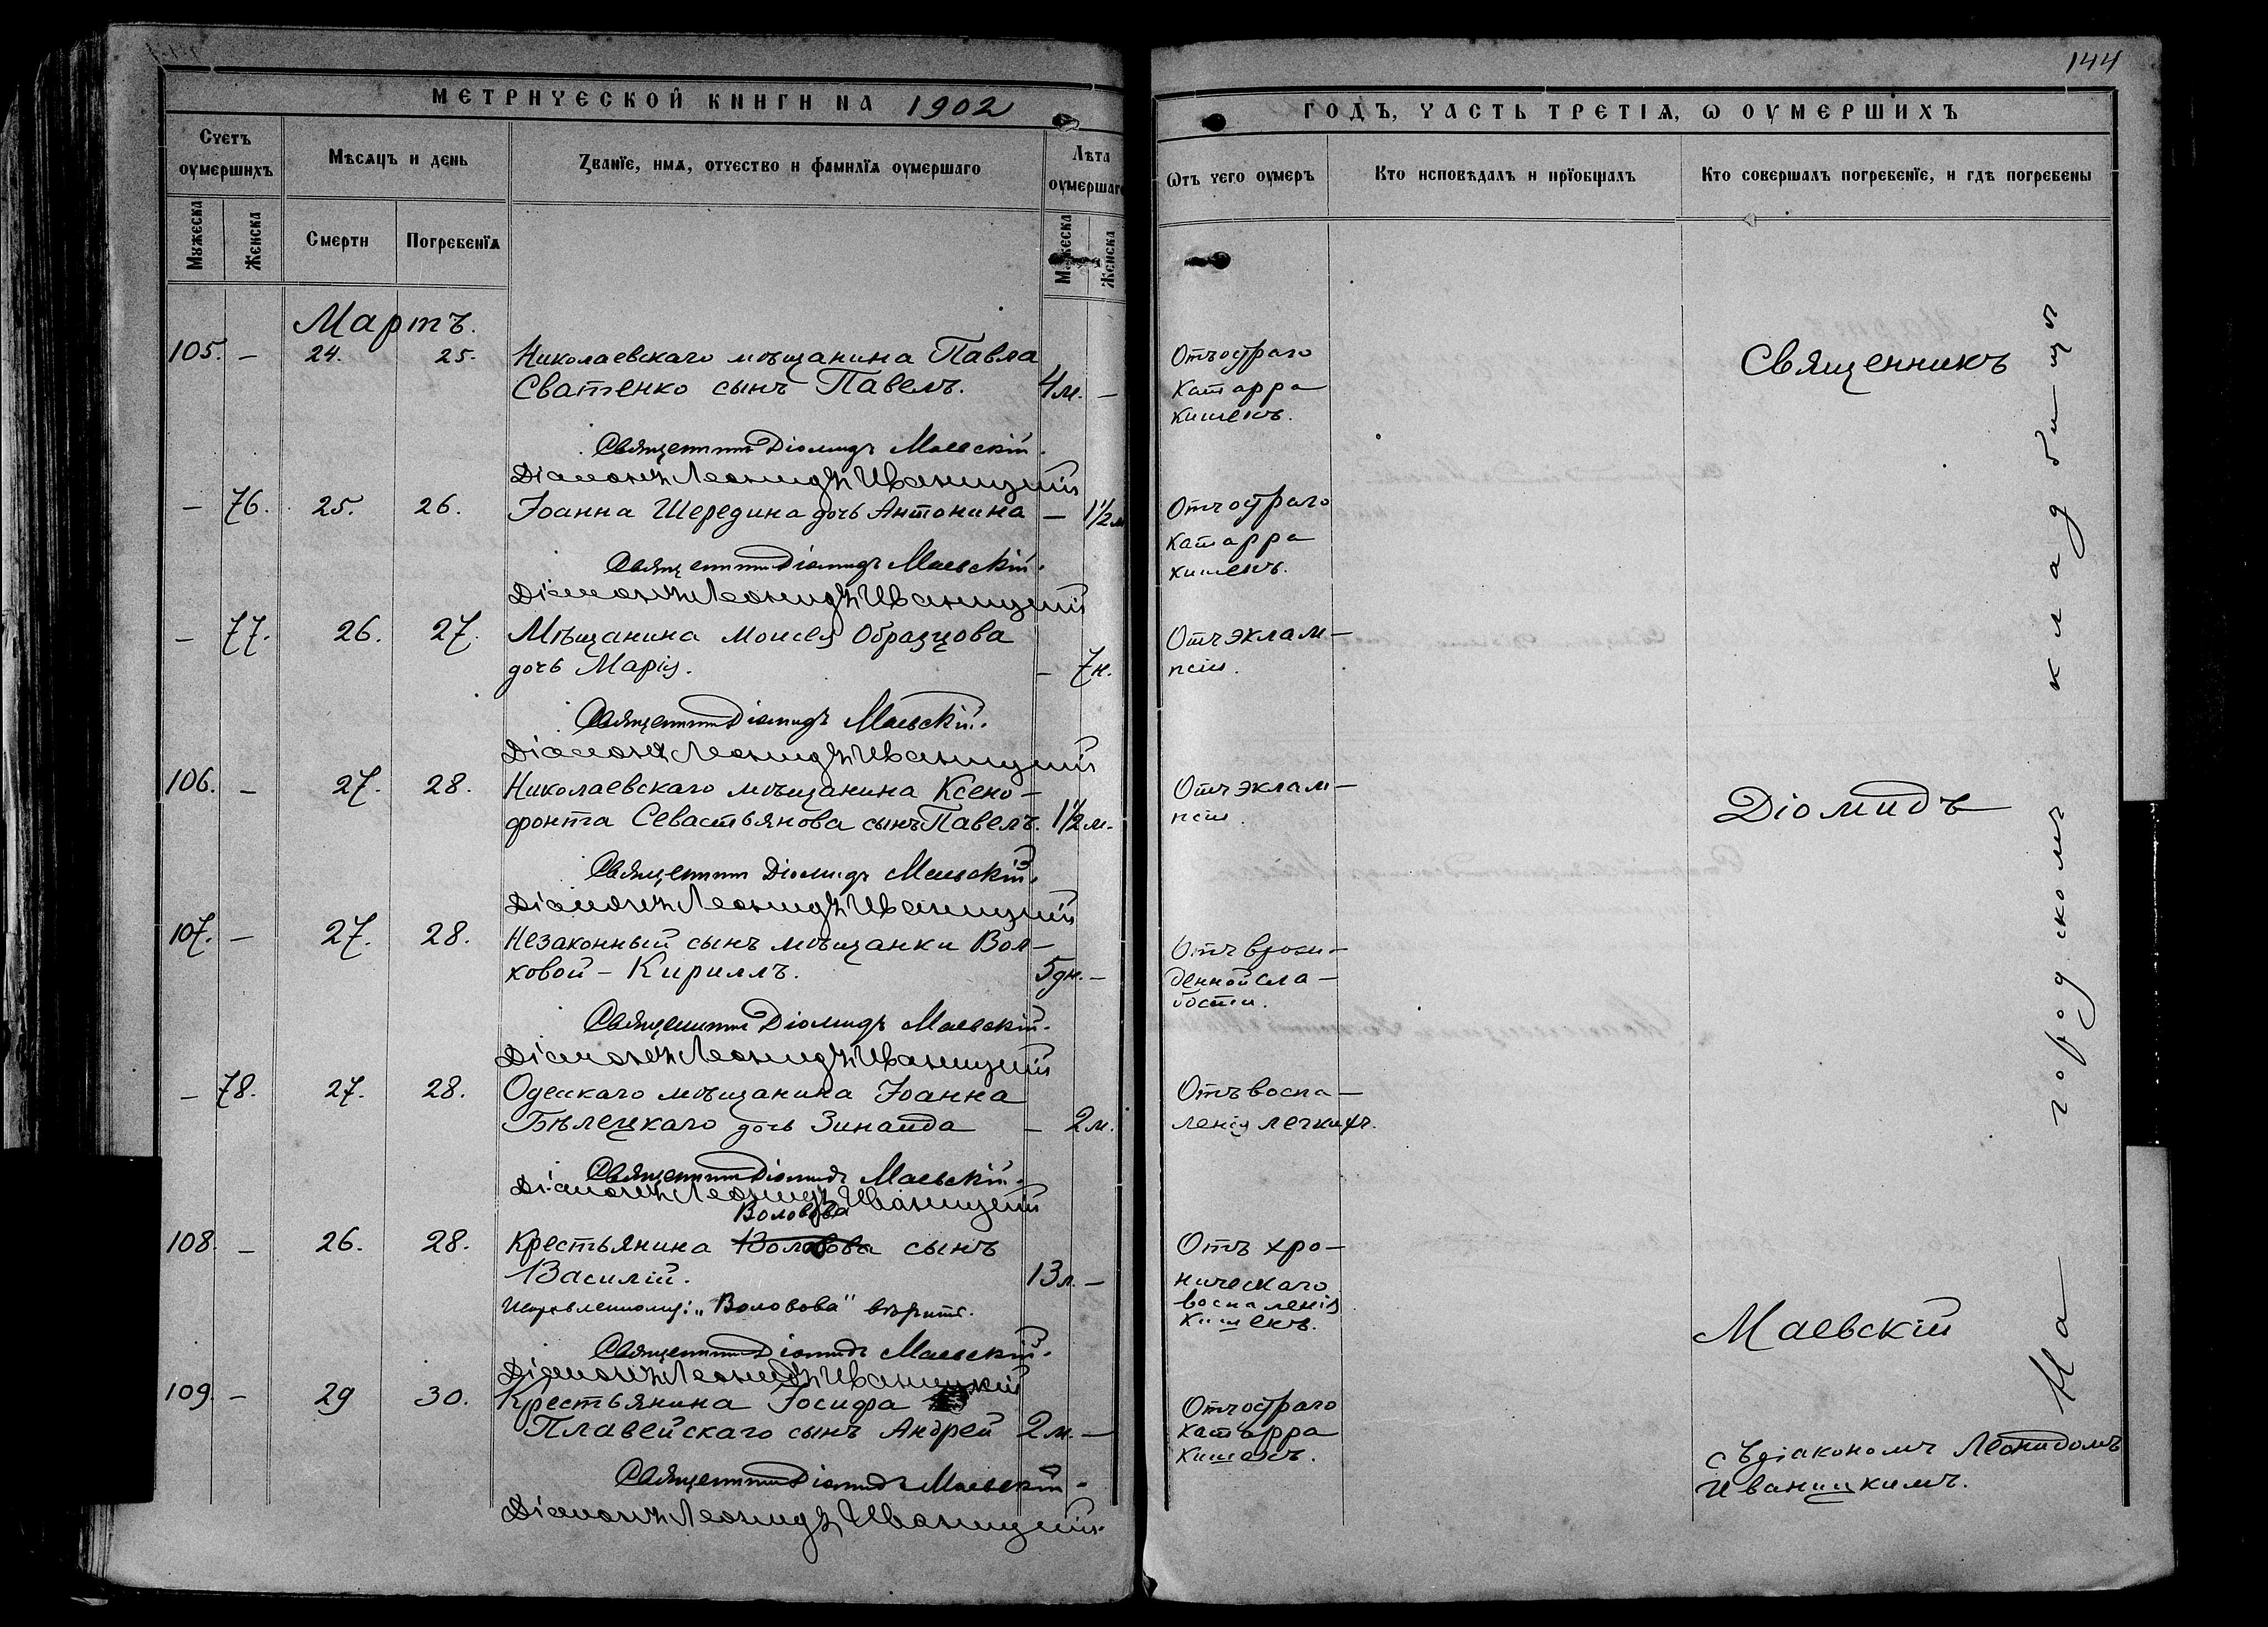 МЕТРИЧЕСКОЙ КНИГИ НА 1902
Счетъ
оумершихъ
Мѣсяцъ и день
Званїе, имя, отчество и фамилїя оумершаго
Лѣта
оумершаго
Мужеска
Женска
Смерти
Погребенїя
Мужеска
Женска
Мартъ.
105. — 24. 25. Николаевскаго мѣщанина Павла
Сватенко сынъ Павелъ. 4 м. —
Священникъ Діомидъ Маевскій.
Діаконъ Леонидъ Иваницкій
— 76. 25. 26. Іоанна Шередина дочь Антонина — 1½ м
Священникъ Діомидъ Маевскій.
Діаконъ Леонидъ Иваницкій
— 77. 26. 27. Мѣщанина Моисея Образцова
дочь Марія. — 7 н.
Священникъ Діомидъ Маевскій.
Діаконъ Леонидъ Иваницкій
106. — 27. 28. Николаевскаго мѣщанина Ксено-
фонта Севастьянова сынъ Павелъ. 1½ м.
Священникъ Діомидъ Маевскій.
Діаконъ Леонидъ Иваницкій
107. — 27. 28. Незаконный сынъ мѣщанки Вол-
ковой - Кириллъ. 5 дн. —
Священникъ Діомидъ Маевскій.
Діаконъ Леонидъ Иваницкій
— 78. 27. 28. Одескаго мѣщанина Іоанна
Бѣлецкаго дочь Зинаида — 2 м.
Священникъ Діомидъ Маевскій.
Діаконъ Леонидъ Иваницкій
Воловова
108. — 26. 28. Крестьянина сынъ
Василій. 13 л. —
Исправленному: „Воловова" вѣрить.
Священникъ Діомидъ Маевскій.
Діаконъ Леонидъ Иваницкій
109. — 29 30. Крестьянина Іосифа
Плавейскаго сынъ Андрей 2 м. —
Священникъ Діомидъ Маевскій.
Діаконъ Леонидъ Иваницкій.
144
ГОДЪ, ЧАСТЬ ТРЕТІЯ, Ѡ ОУМЕРШИХЪ
Ѡтъ чего оумеръ
Кто исповѣдалъ и прїобщалъ
Кто совершалъ погребенїе, и гдѣ погребены
Отъ остраго
катарра
кишекъ.
Отъ остраго
катарра
кишекъ.
Отъ эклам-
псіи.
Отъ эклам-
псіи.
Отъ врожд-
денной сла-
бости.
Отъ воспа-
ленія легкихъ.
Отъ хро-
ническаго
воспаленія
кишекъ.
Отъ остраго
катарра
кишекъ.
Священникъ
Діомидъ
Маевскій
съ діакономъ Леонидомъ
Иваницкимъ.
На городскомъ кладбищѣ